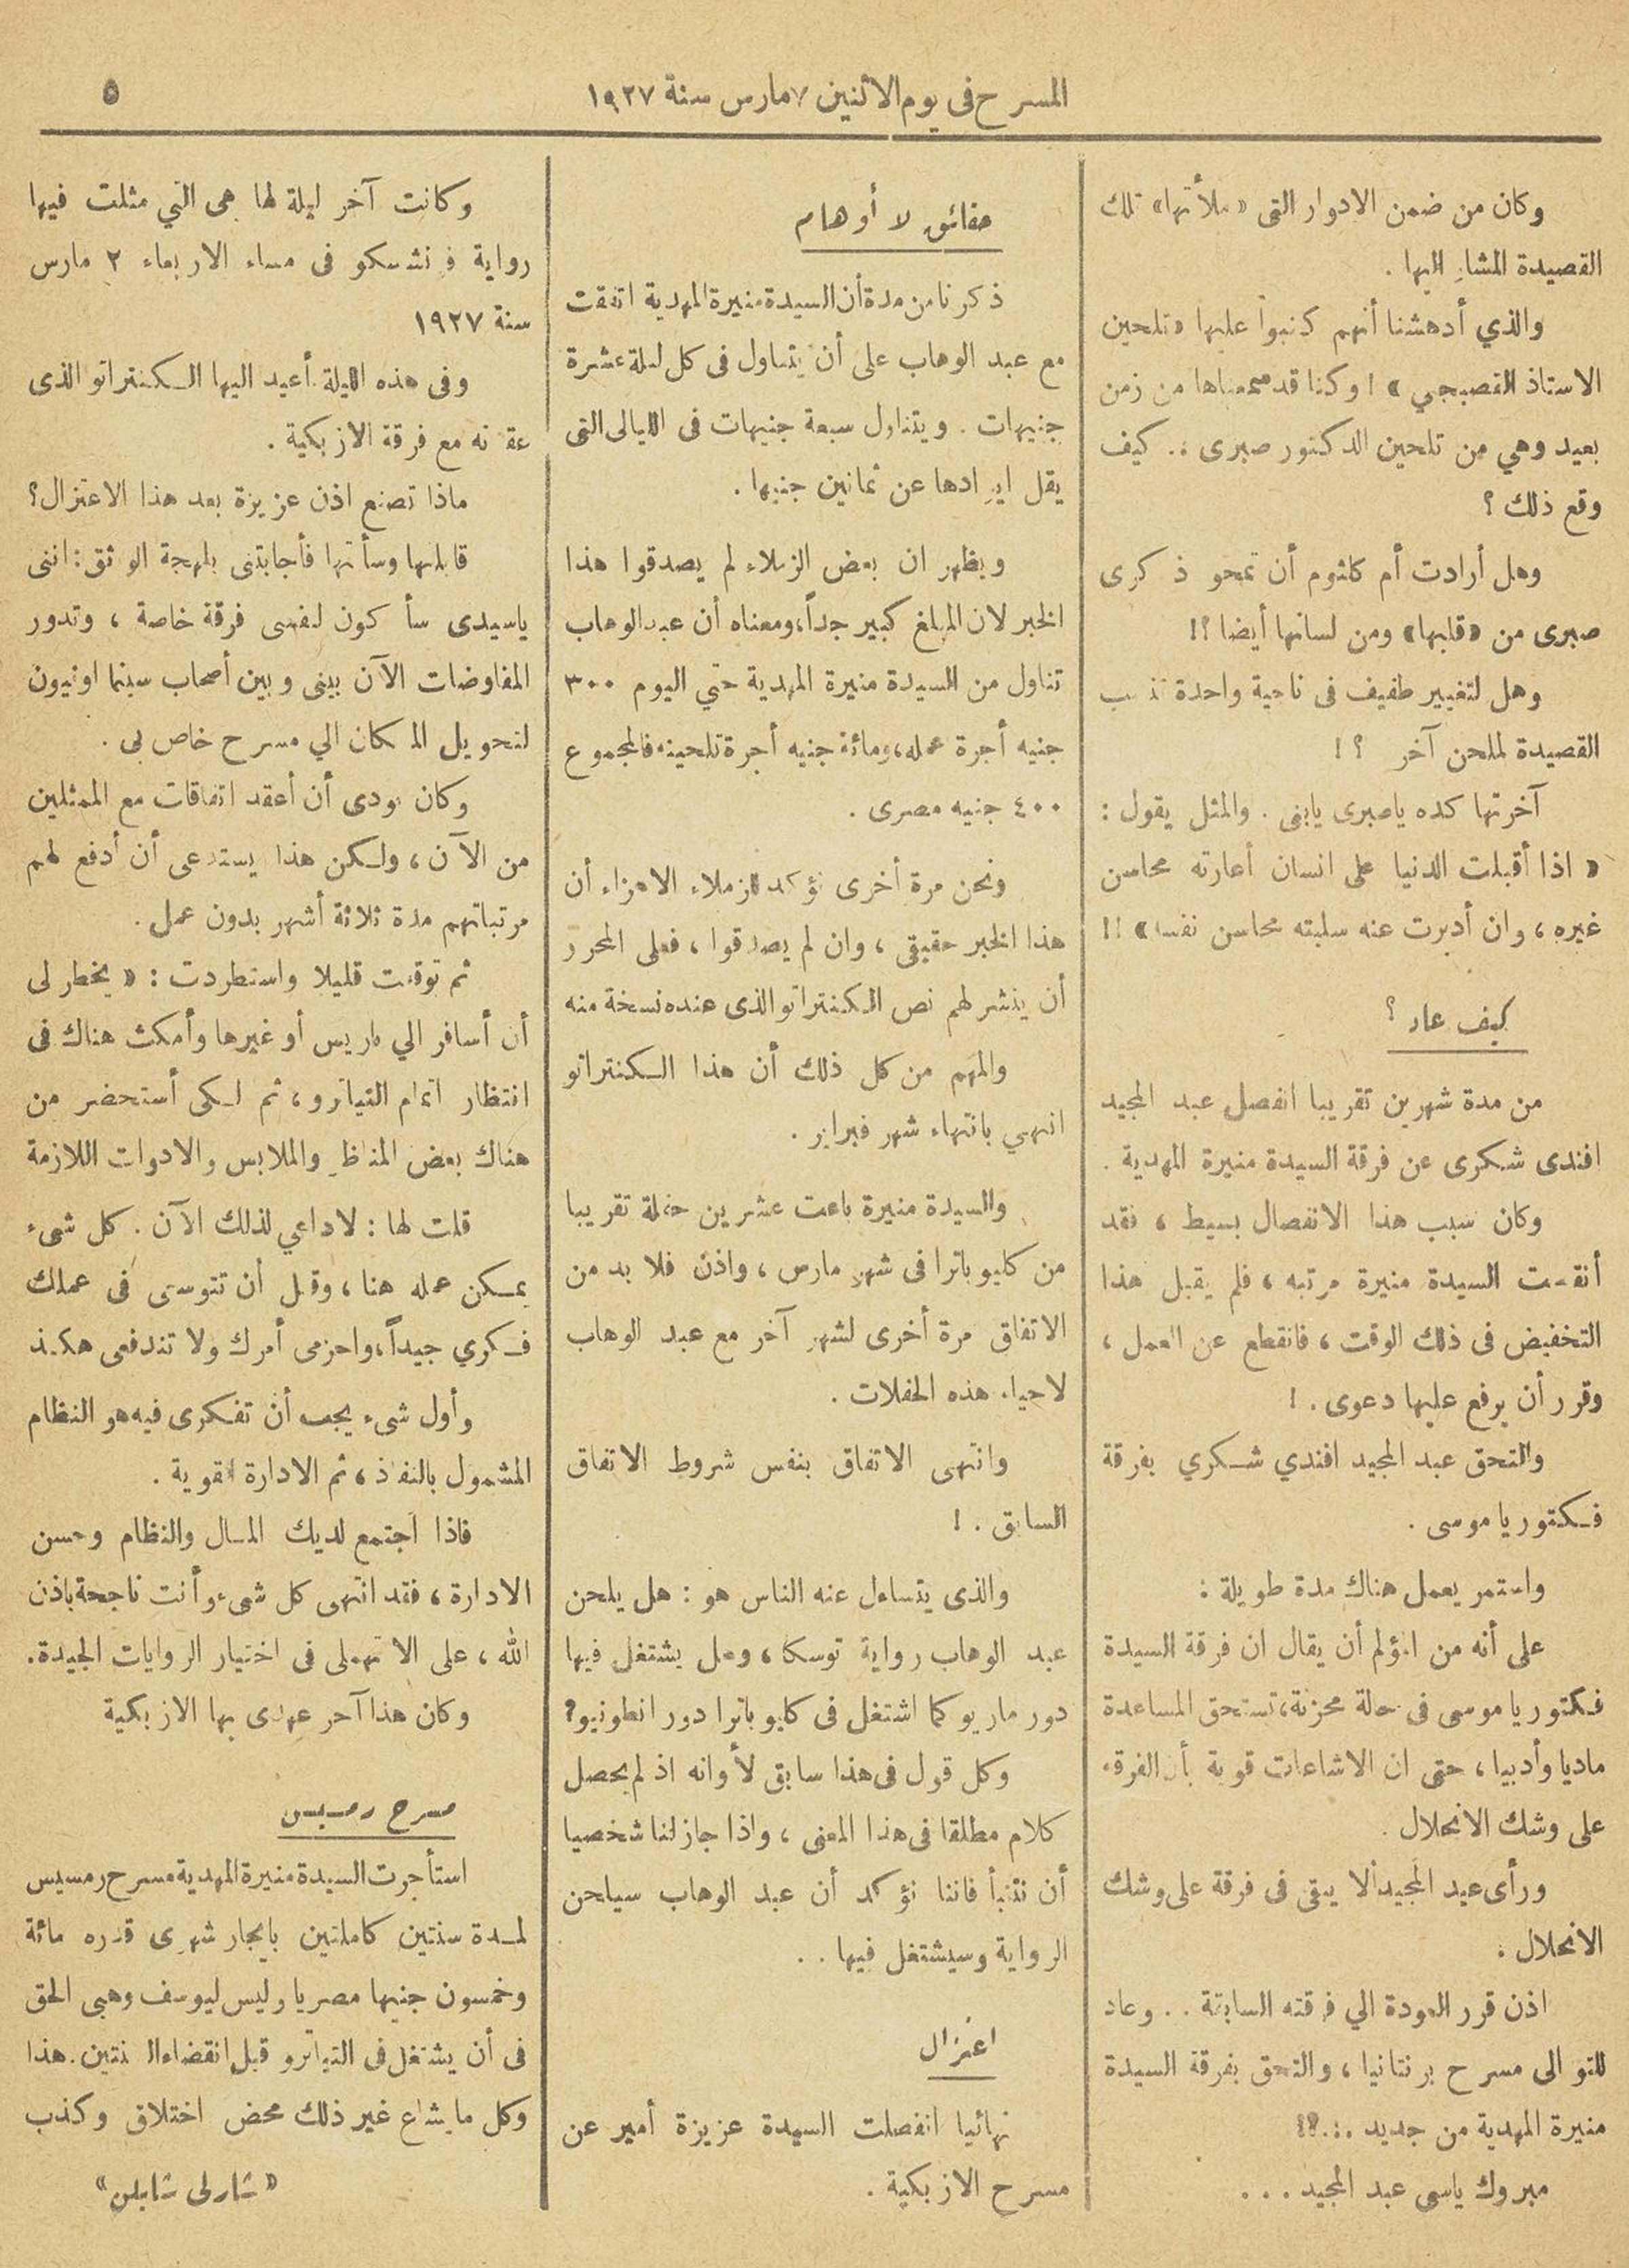 المسرح فى يوم الاثنين ٧ مارس سنة ١٩٢٧
٥
وكان من ضمن الادوار التى «ملأتها» تلك
القصيدة المشار اليها .
والذي أدهشنا أنهم كتبوا عليها «تلحين
الاستاذ القصبجي» ! وكنا قد سمعناها من زمن
بعيد وهي من تلحين الدكتور صبرى .. كيف
وقع ذلك ؟
وهل أرادت أم كلثوم أن تمحو ذكرى
صبرى من «قلبها» ومن لسانها أيضا ؟!
وهل لتغيير طفيف فى ناحية واحدة تنسب
القصيدة لملحن آخر ؟ !
آخرتها كده ياصبرى يابنى . والمثل يقول :
« اذا أقبلت الدنيا على انسان أعارته محاسن
غيره ، وان أدبرت عنه سلبته محاسن نفسه» !!
كيف عاد ؟
من مدة شهرين تقريبا انفصل عبد المجيد
افندى شكرى عن فرقة السيدة منيرة المهدية .
وكان سبب هذا الانفصال بسيط ، فقد
أنقصت السيدة منيرة مرتبه ، فلم يقبل هذا
التخفيض فى ذلك الوقت ، فانقطع عن العمل ،
وقرر أن يرفع عليها دعوى . !
والتحق عبد المجيد افندي شكري بفرقة
فكتوريا موسى .
واستمر يعمل هناك مدة طويلة :
على أنه من المؤلم أن يقال ان فرقة السيدة
فكتوريا موسى فى حالة محزنة ، تستحق المساعدة
ماديا وأدبيا ، حتى ان الاشاعات قوية بأن الفرقة
على وشك الانحلال .
ورأى عبد المجيد ألا يبقى فى فرقة على وشك
الانحلال .
اذن قرر العودة الي فرقته السابقة . . وعاد
للتو الى مسرح برنتانيا ، والتحق بفرقة السيدة
منيرة المهدية من جديد ..؟!
مبروك ياسى عبد المجيد . . .
حقائق لا أوهام
ذكرنا من مدة أن السيدة منيرة المهدية اتفقت
مع عبد الوهاب على أن يتناول فى كل ليلة عشرة
جنيهات . ويتناول سبعة جنيهات فى الليالى التى
يقل ايرادها عن ثمانين جنيها .
ويظهر ان بعض الزملاء لم يصدقوا هذا
الخبر لان المبلغ كبير جداً ، ومعناه أن عبد الوهاب
تناول من السيدة منيرة المهدية حتي اليوم ٣٠٠
جنيه أجرة عمله ، ومائة جنيه أجرة تلحينه فالمجموع
٤٠٠ جنيه مصرى .
ونحن مرة أخرى نؤكد للزملاء الاعزاء أن
هذا الخبر حقيقى ، وان لم يصدقوا ، فعلى المحرر
أن ينشر لهم نص الكنتراتو الذى عنده نسخة منه
والمهم من كل ذلك أن هذا الكنتراتو
انتهي بانتهاء شهر فبراير .
والسيدة منيرة باعت عشرين حفلة تقريبا
من كليوباترا فى شهر مارس ، واذن فلا بد من
الاتفاق مرة أخرى لشهر آخر مع عبد الوهاب
لاحياء هذه الحفلات .
وانتهى الاتفاق بنفس شروط الاتفاق
السابق . !
والذى يتساءل عنه الناس هو : هل يلحن
عبد الوهاب رواية توسكا ، وهل يشتغل فيها
دور ماريو كما اشتغل فى كليوباترا دور انطونيو؟
وكل قول فى هذا سابق لأوانه اذ لم يحصل
كلام مطلقا فى هذا المعنى ، واذا جاز لنا شخصيا
أن نتنبأ فاننا نؤكد أن عبد الوهاب سيلحن
الرواية وسيشتغل فيها . .
اعتزال
نهائيا انفصلت السيدة عزيزة أمير عن
مسرح الازبكية .
وكانت آخر ليلة لها هى التي مثلت فيها
رواية فرنشسكو فى مساء الاربعاء ٢ مارس
سنة ١٩٢٧
وفى هذه الليلة أعيد اليها الكنتراتو الذى
عقدته مع فرقة الازبكية .
ماذا تصنع اذن عزيزة بعد هذا الاعتزال؟
قابلتها وسألتها فأجابتنى بلهجة الواثق : اننى
ياسيدى سأكون لنفسى فرقة خاصة ، وتدور
المفاوضات الآن بينى وبين أصحاب سينما اونيون
لتحويل المكان الي مسرح خاص بى .
وكان بودى أن أعقد اتفاقات مع الممثلين
من الآن ، ولكن هذا يستدعى أن أدفع لهم
مرتباتهم مدة ثلاثة أشهر بدون عمل .
ثم توقفت قليلا واستطردت : « يخطر لى
أن أسافر الي باريس أو غيرها وأمكث هناك فى
انتظار اتمام التياترو ، ثم لكى أستحضر من
هناك بعض المناظر والملابس والادوات اللازمة
قلت لها : لاداعي لذلك الآن . كل شىء
يمكن عمله هنا ، وقبل أن تتوسعى فى عملك
فكري جيداً ، واحزمى أمرك ولا تندفعى هكذا
وأول شىء يجب أن تفكرى فيه هو النظام
المشمول بالنفاذ ، ثم الادارة القوية .
فاذا اجتمع لديك المال والنظام وحسن
الادارة ، فقد انتهى كل شىء وأنت ناجحة باذن
الله ، على الا تهملى فى اختيار الروايات الجيدة .
وكان هذا آخر عهدى بها الازبكية
مسرح رمسيس
استأجرت السيدة منيرة المهدية مسرح رمسيس
لمدة سنتين كاملتين بايجار شهرى قدره مائة
وخمسون جنيها مصريا وليس ليوسف وهبى الحق
فى أن يشتغل فى التياترو قبل انقضاء السنتين . هذا
وكل مايشاع غير ذلك محض اختلاق وكذب
«شارلى شابلن»